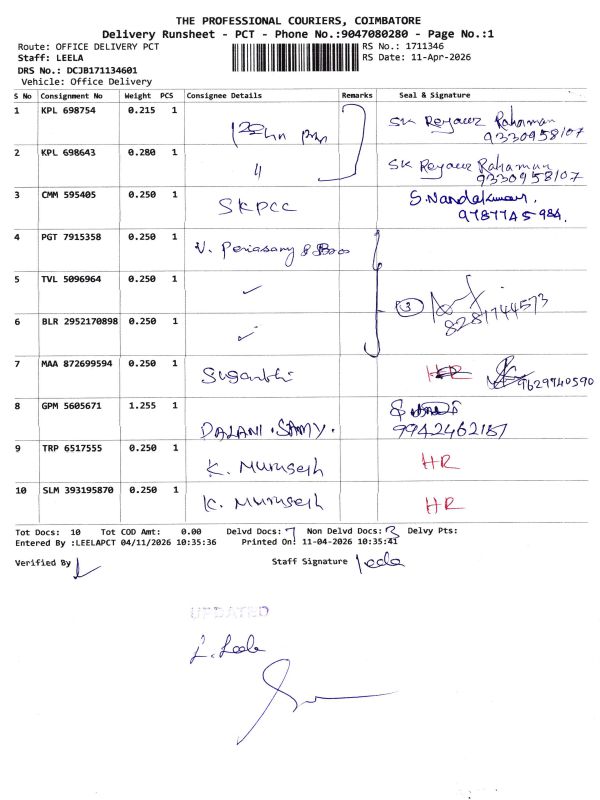 THE PROFESSIONAL COURIERS, COIMBATORE
Delivery Runsheet - PCT - Phone No.:9047080280 - Page No.:1
Route: OFFICE DELIVERY PCT RS No.: 1711346
Staff: LEELA RS Date: 11-Apr-2026
DRS No.: DCJB171134601
Vehicle: Office Delivery
S No Consignment No Weight PCS Consignee Details Remarks Seal & Signature
1 KPL 698754 0.215 1
SK Reyaur Rahaman
9330958107
2 KPL 698643 0.280 1 SK Reyaur Rahaman
9330958107
3 CMM 595405 0.250 1 SKPCC S. Nandakumar.
9787745984.
4 PGT 7915358 0.250 1 V. Periasamy & Bro
5 TVL 5096964 0.250 1 ✓
3 8281744573
6 BLR 2952170898 0.250 1 ✓
7 MAA 872699594 0.250 1 Suganthi 9629940590
8 GPM 5605671 1.255 1 PALANI.SAMY. 9942462187
9 TRP 6517555 0.250 1 K. Murusesh HR
10 SLM 393195870 0.250 1 K. Murusesh HR
Tot Docs: 10 Tot COD Amt: 0.00 Delvd Docs: 7 Non Delvd Docs: 3 Delvy Pts:
Entered By :LEELAPCT 04/11/2026 10:35:36 Printed On: 11-04-2026 10:35:41
Verified By Staff Signature leela
UPDATED
L. Leela